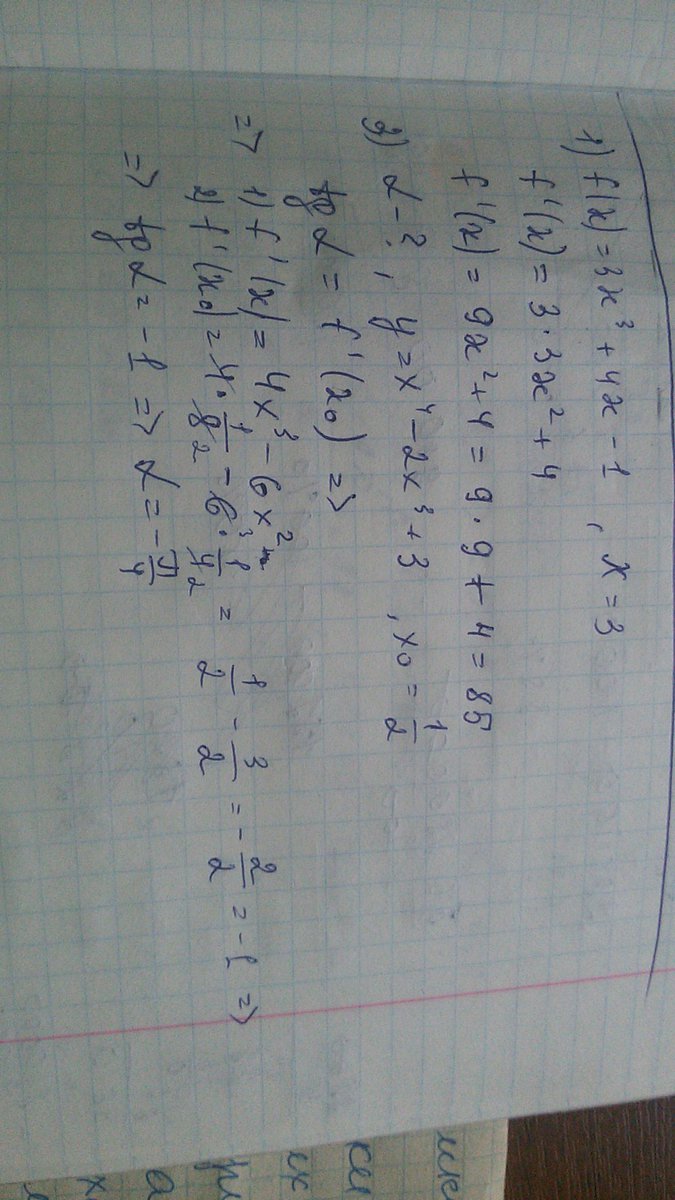 1) f(x) = 3x³ + 4x - 1 , x = 3
f'(x) = 3·3x² + 4
f'(x) = 9x² + 4 = 9·9 + 4 = 85
2) α - ? , y = x⁴ - 2x³ + 3 , x₀ = 1/2
tg α = f'(x₀) =>
=> 1) f'(x) = 4x³ - 6x²
2) f'(x₀) = 4·1/8 - 6·1/4 = 1/2 - 3/2 = -2/2 = -1 =>
=> tg α = -1 => α = -π/4